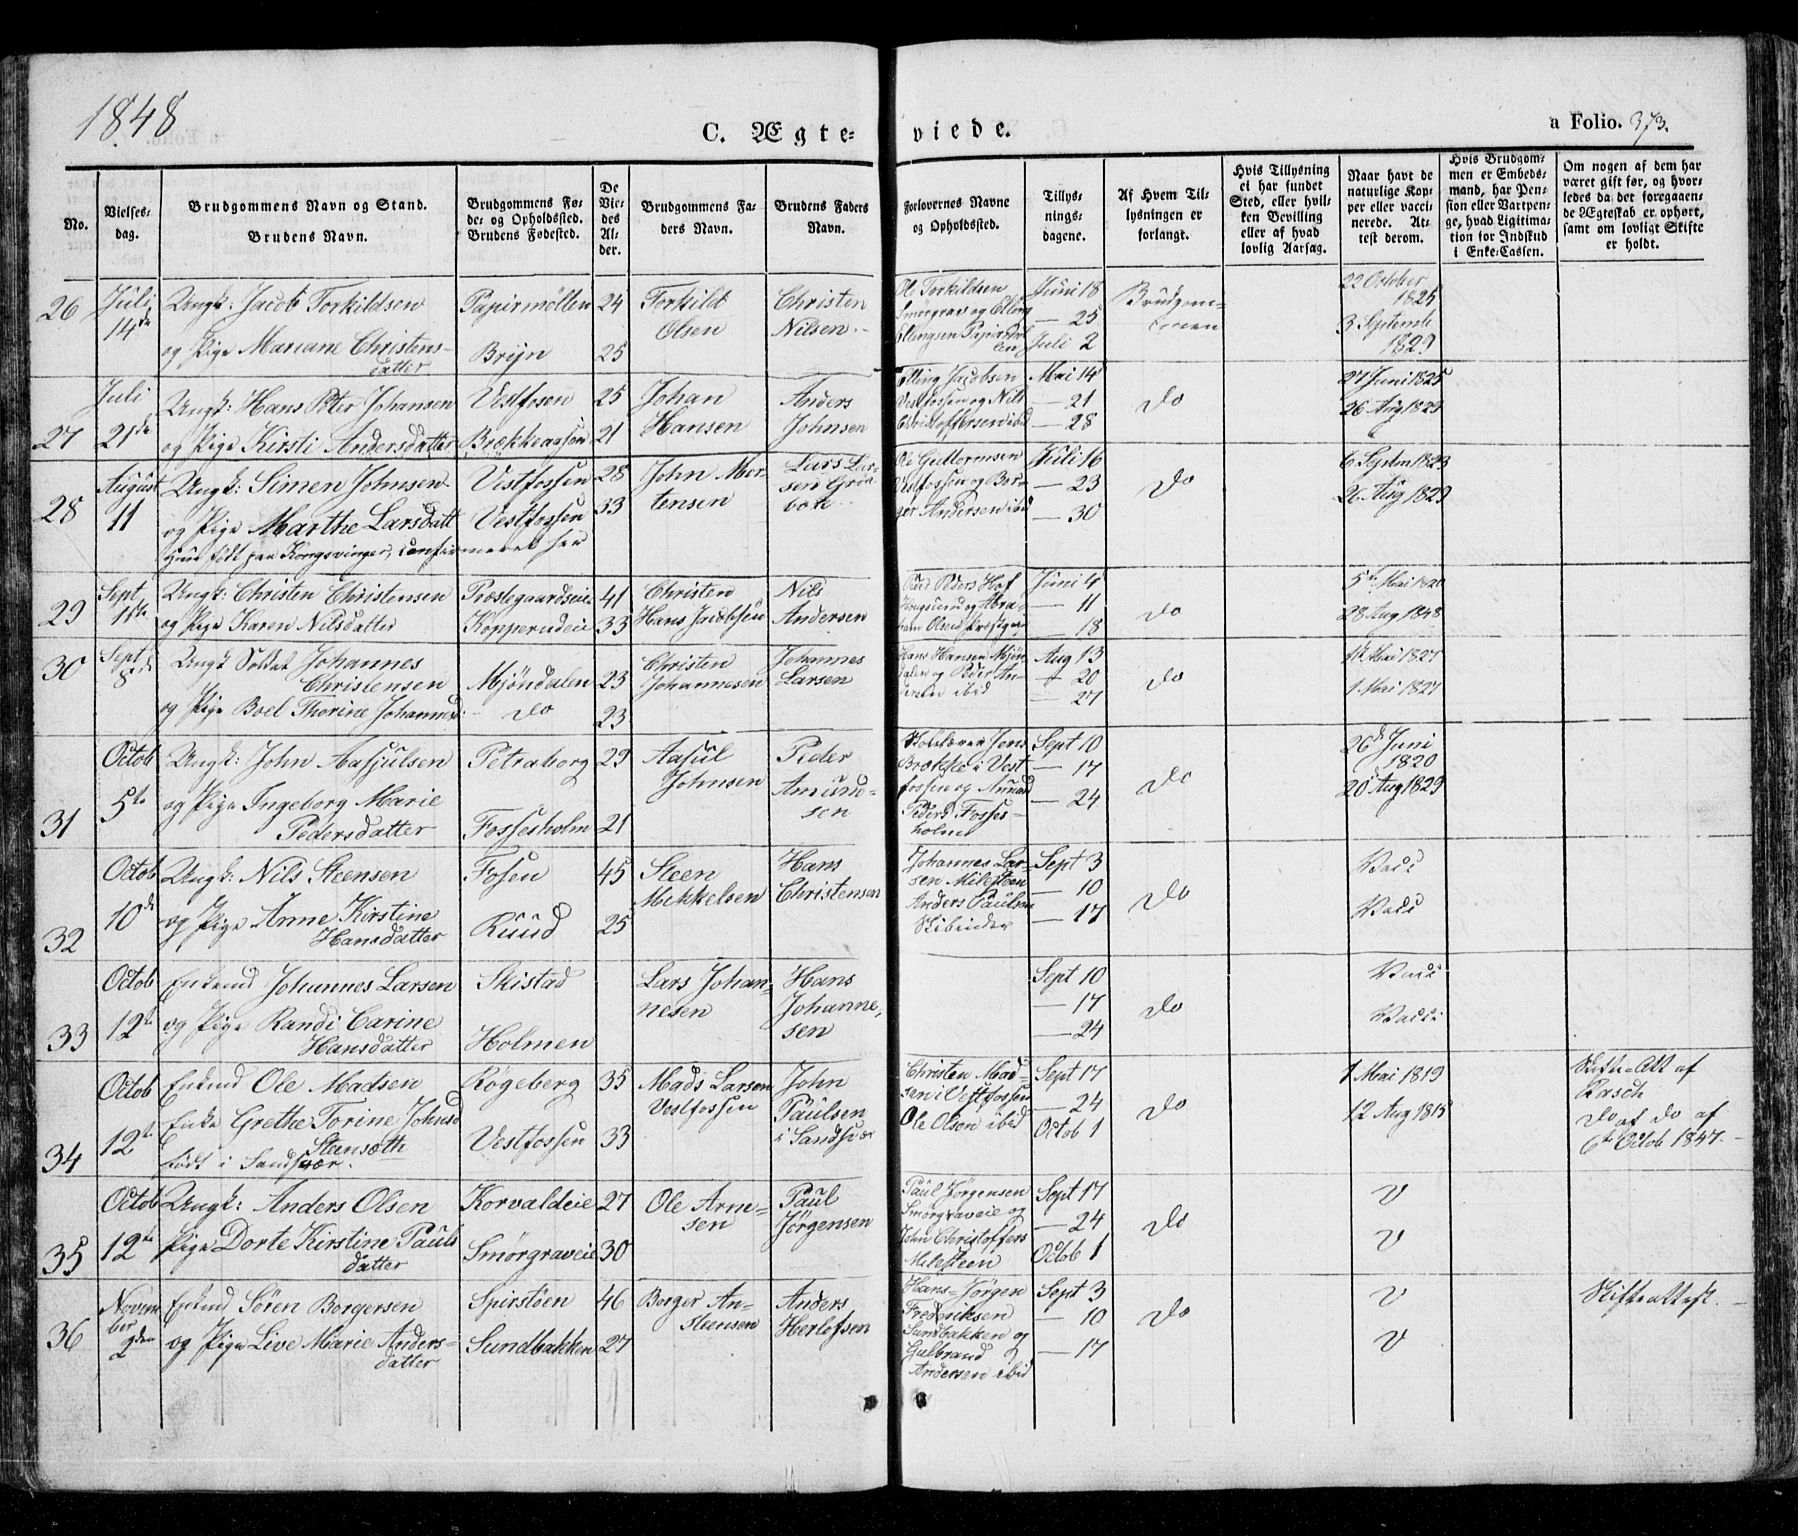 1848
C. Ægteviede.
a Folio. 373.
No.
Vielsesdag.
Brudgommens Navn og Stand.
Brudens Navn.
Brudgommens Føde- og Opholdssted.
Brudens Fødested.
De Viedes Alder.
Brudgommens Faders Navn.
Brudens Faders Navn.
Forlovernes Navne og Opholdssted.
Tillysningsdagene.
Af Hvem Tillysningen er forlangt.
Hvis Tillysning ei har fundet Sted, eller hvilken Bevilling eller af hvad lovlig Aarsag.
Naar havt de naturlige Kopper eller vaccinerede. Attest derom.
Hvis Brudgommen er Embedsmand, har Pension eller Vartpenge, hvad Ligitimation for Indskud i Enke-Cassen.
Om nogen af dem har været gift før, og hvorledes da det foregaaende Ægteskab er ophørt, samt om lovligt Skifte er holdt.
26 Juli 14de Ungk: Jacob Torkildsen Papirmöllen 24 Torkild Olsen Christen Nilsen
og Pige Mariane Christensdatter Brejn 25
Ol Torkildsen Smörgrav og Elling Ellingsen
Juni 18 — 25 Juli 2
22 October 1825
3 Septemb 1829
27 Juli 21de Ungk: Hans Peter Johansen Vestfosen 25 Johan Hansen Anders Johnsen
og Pige Kirsti Andersdatter Brækkeaasen 21
Elling Jacobsen Vestfossen og Nils Christoffersen ibid
Mai 14 — 21 — 28
Do
27 Juni 1825
26 Aug 1829
28 August 11 Ungk: Simen Johnsen Vestfossen 28 John Mortensen Lars Larsen Grönbak
og Pige Marthe Larsdatt Vestfossen 33
Hun födt paa Kongsvinger, confirmeret her
Ole Guttormsen Vestfossen og Borger Andersen ibid
Juli 16 — 23 — 30
Do
6 Septem 1823
26 Aug 1829
29 Sept 1ste Ungk: Christen Christensen Præstegaardseie 41 Christen Hans Jacobsen Nils Andersen
og Pige Karen Nilsdatter Kopperudeie 33
Juni 4 — 11 — 18
Do
5te Mai 1820
28 Aug 1848
30 Sept 8de Ungk Soldat Johannes Christensen Mjöndalen 23 Christen Johannesen Johannes Larsen
og Pige Boel Thorine Johannesd: Do 23
Hans Hansen Mjöndalen og Peder Andersen ibid
Aug 13 — 20 — 27
Do
Mai 1827
1 Mai 1827
31 Octob 5te Ungk: John Aasjulsen Petraborg 29 Aasul Johnsen Peder Amundsen
og Pige Ingeborg Marie Pedersdatter Fossesholm 21
Skolelærer Jens Brække i Vestfossen og Amund Peders Fossesholm
Sept 10 — 17 — 24
Do
26de Juni 1820
20 Aug 1829
32 Octob 10de Ungk: Nils Steensen Fosen 45 Steen Mekkelsen Hans Christensen
og Pige Anne Kirstine Hansdatter Ruud 25
Johannes Larsen Milesteen Anders Paulsen Stibinder
Sept 3 — 10 — 17
Do
Vacc
Vacc
33 Octob 12te Enkemd Johannes Larsen Skistad Lars Johannesen Hans Johannesen
og Pige Randi Carine Hansdatter Holmen
Sept 10 — 17 — 24
Do
Vacc
Vacc
34 Octob 12te Enkemd Ole Madsen Rögeberg 35 Mads Larsen Vestfossen John Paulsen i Sandsvær
Enke Grethe Torine Johnsd Stensæth Vestfossen 33
födt i Sandsvær.
Christen Madsen i Vestfossen Ole Olsen ibid
Sept 17 — 24 Octob 1
Do
1 Mai 1819
12 Aug 1815
Skifte-Att af Rasch
Do af Do af 6te Octob 1847.
35 Octob 12te Ungk: Anders Olsen Korvaldeie 27 Ole Arnesen Paul Jörgensen
Pige Dorte Kirstine Paulsdatter Smörgraveie 30
Paul Jörgensen Smörgraveie og John Christoffers Milesteen
Sept 17 — 24 Octob 1
Do
V
V
36 November 2den Enkemd Sören Borgersen Spirstöen 46 Borger Ansteensen Anders Herlofsen
og Pige Live Marie Andersdatter Sundbakken 27
Hans Jörgen Fredriksen Sundbakken og Gulbrand Andersen ibid
Sept 3 — 10 — 17
Do
V
V
Skifteattest.